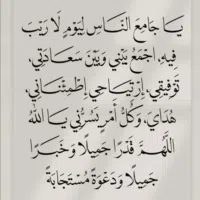 يَا جَامِعَ النَّاسِ لِيَوْمٍ لَا رَيْبَ
فِيهِ، اجْمَعْ بَيْنِي وَبَيْنَ سَعَادَتِي،
تَوْفِيقِي، إِرْتِيَاحِي إِطْمِئْنَانِي،
هُدَايَ، وَكُلُّ أَمْرٍ يَسُرُّنِي يَا اللّٰه
اللَّهُمَّ قَدَرًا جَمِيلًا وَخَبَرًا
جَمِيلًا وَدَعْوَةً مُسْتَجَابَةً